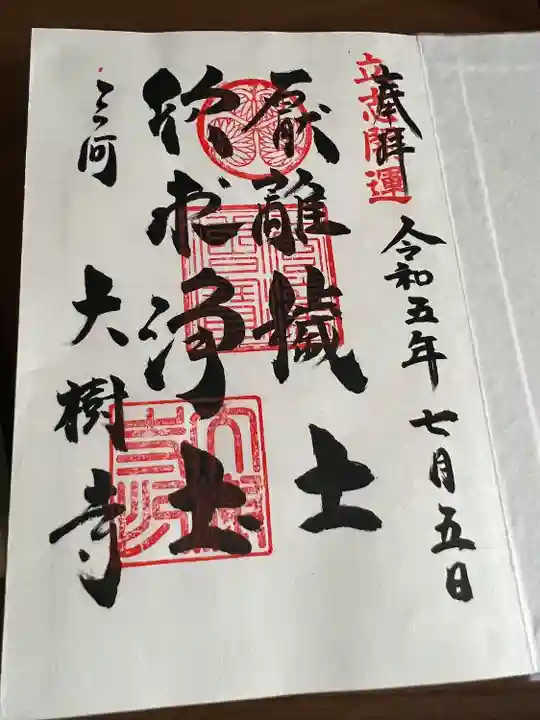 奉拝
立志開運
令和五年七月五日
厭離穢土
欣求浄土
三河
大樹寺